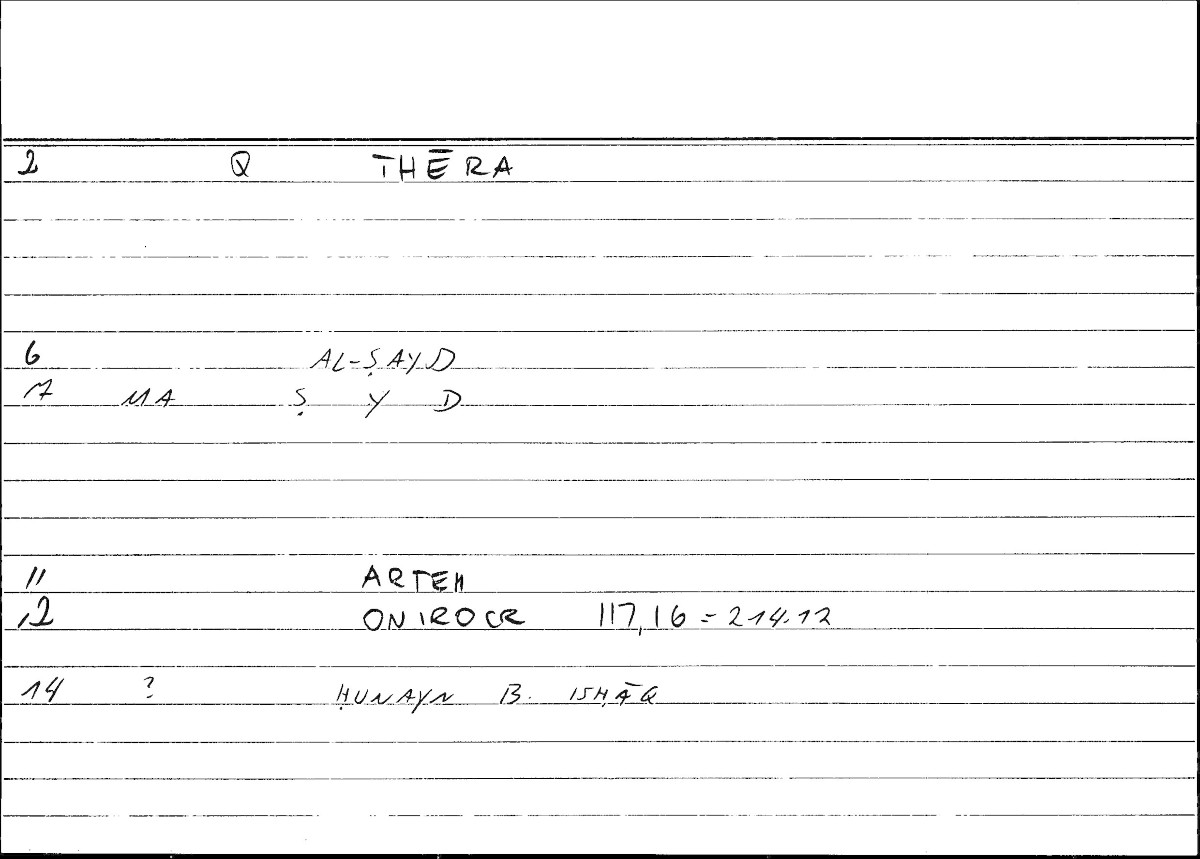 2 Q THĒRA
6 AL-ṢAYD
7 MA Ṣ Y D
11 ARTEM
12 ONIROCR 117,16 = 214.12
14 ? ḤUNAYN B. ISḤĀQ